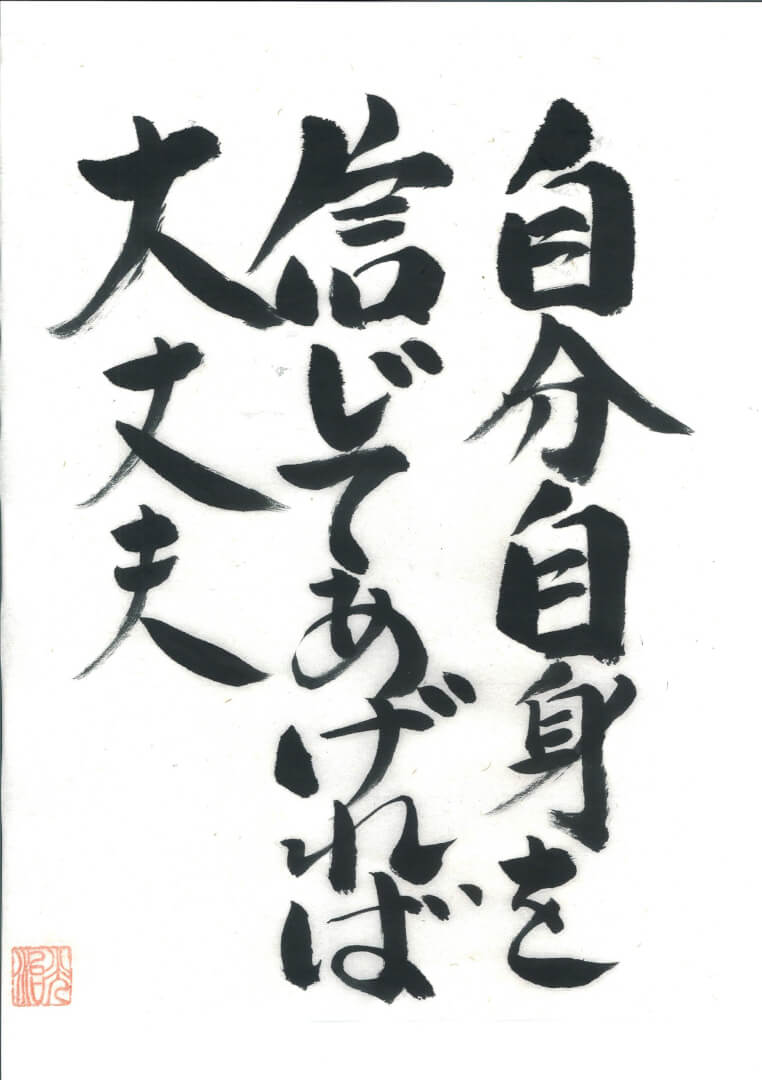 自分自身を
信じてあげれば
大丈夫